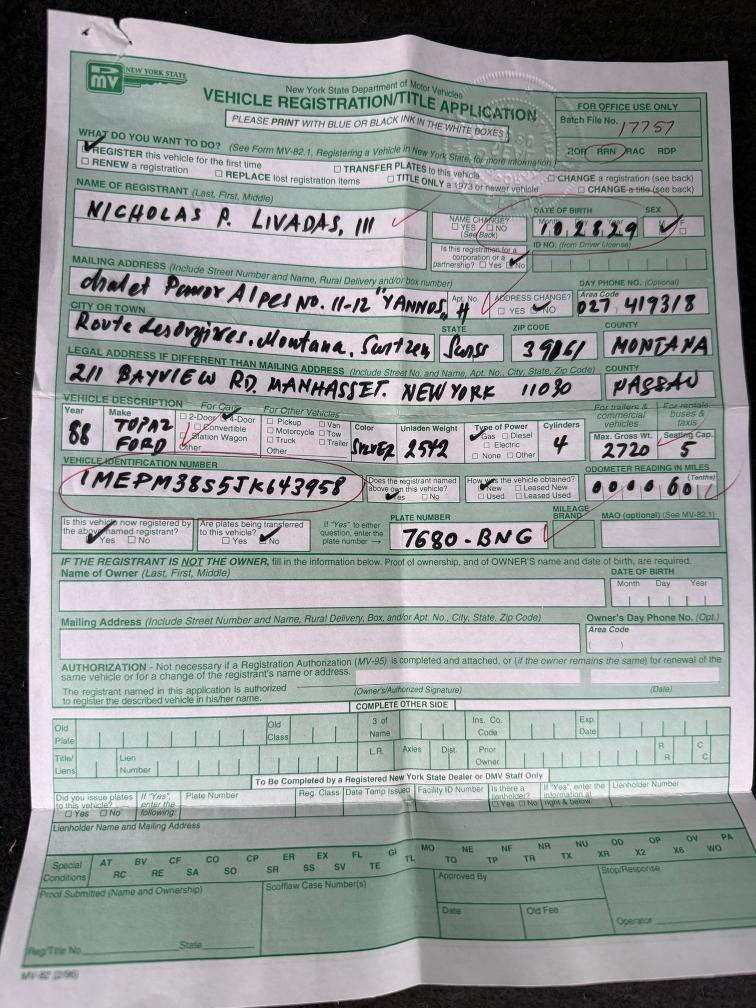 NEW YORK STATE
DMV
New York State Department of Motor Vehicles
VEHICLE REGISTRATION/TITLE APPLICATION
PLEASE PRINT WITH BLUE OR BLACK INK IN THE WHITE BOXES
FOR OFFICE USE ONLY
Batch File No. 17757
RRN RAC RDP
WHAT DO YOU WANT TO DO? (See Form MV-82.1, Registering a Vehicle in New York State, for more information)
REGISTER this vehicle for the first time
TRANSFER PLATES to this vehicle
CHANGE a registration (see back)
RENEW a registration
REPLACE lost registration items
TITLE ONLY a 1973 or newer vehicle
CHANGE a title (see back)
NAME OF REGISTRANT (Last, First, Middle)
NICHOLAS P. LIVADAS, III
NAME CHANGE?
YES NO
(See Back)
DATE OF BIRTH
Month Year
10.28.29
SEX
M
Is this registration for a corporation or a partnership? Yes No
ID NO. (from Driver License)
MAILING ADDRESS (Include Street Number and Name, Rural Delivery and/or box number)
Apt. No.
ADDRESS CHANGE?
YES NO
DAY PHONE NO. (Optional)
Area Code
027 419318
CITY OR TOWN
STATE
ZIP CODE
COUNTY
MONTANA
LEGAL ADDRESS IF DIFFERENT THAN MAILING ADDRESS (Include Street No. and Name, Apt. No., City, State, Zip Code)
COUNTY
211 BAYVIEW RD. MANHASSET. NEW YORK 11030
NASSAU
VEHICLE DESCRIPTION
Year
88
Make
TOPAZ
FORD
For Cars
2-Door 4-Door
Convertible
Station Wagon
Other
For Other Vehicles
Pickup Van
Motorcycle Tow
Truck Trailer
Other
Color
SILVER
Unladen Weight
2542
Type of Power
Gas Diesel
Electric
None Other
Cylinders
4
For trailers & commercial vehicles
Max. Gross Wt.
2720
For rentals, buses & taxis
Seating Cap.
5
VEHICLE IDENTIFICATION NUMBER
1MEPM38S5JK643958
Does the registrant named above own this vehicle?
Yes No
How was the vehicle obtained?
New Leased New
Used Leased Used
ODOMETER READING IN MILES
(Tenths)
000060
Is this vehicle now registered by the above named registrant?
Yes No
Are plates being transferred to this vehicle?
Yes No
If "Yes" to either question, enter the plate number →
PLATE NUMBER
7680-BNG
MILEAGE BRAND
MAO (optional) (See MV-82.1)
IF THE REGISTRANT IS NOT THE OWNER, fill in the information below. Proof of ownership, and of OWNER'S name and date of birth, are required.
Name of Owner (Last, First, Middle)
DATE OF BIRTH
Month Day Year
Mailing Address (Include Street Number and Name, Rural Delivery, Box, and/or Apt. No., City, State, Zip Code)
Owner's Day Phone No. (Opt.)
Area Code
( )
AUTHORIZATION - Not necessary if a Registration Authorization (MV-95) is completed and attached, or (if the owner remains the same) for renewal of the same vehicle or for a change of the registrant's name or address.
The registrant named in this application is authorized to register the described vehicle in his/her name.
(Owner's/Authorized Signature)
(Date)
COMPLETE OTHER SIDE
Old Plate
Old Class
3 of Name
Ins. Co. Code
Exp. Date
Title/Liens
Lien Number
L.R.
Axles
Dist.
Prior Owner
R R
C C
To Be Completed by a Registered New York State Dealer or DMV Staff Only
Did you issue plates to this vehicle?
Yes No
If "Yes", enter the following:
Plate Number
Reg. Class
Date Temp Issued
Facility ID Number
Is there a lienholder?
Yes No
If "Yes", enter the information at right & below.
Lienholder Number
Lienholder Name and Mailing Address
Special Conditions
AT BV CF CO CP ER EX FL GI MO NE NF NR NU OD OP OV PA
RC RE SA SO SR SS SV TE TL TO TP TR TX XR X2 X6 WO
Proof Submitted (Name and Ownership)
Scofflaw Case Number(s)
Approved By
Stop/Response
Date
Old Fee
Operator
Reg/Title No.
State
MV-82 (2/96)